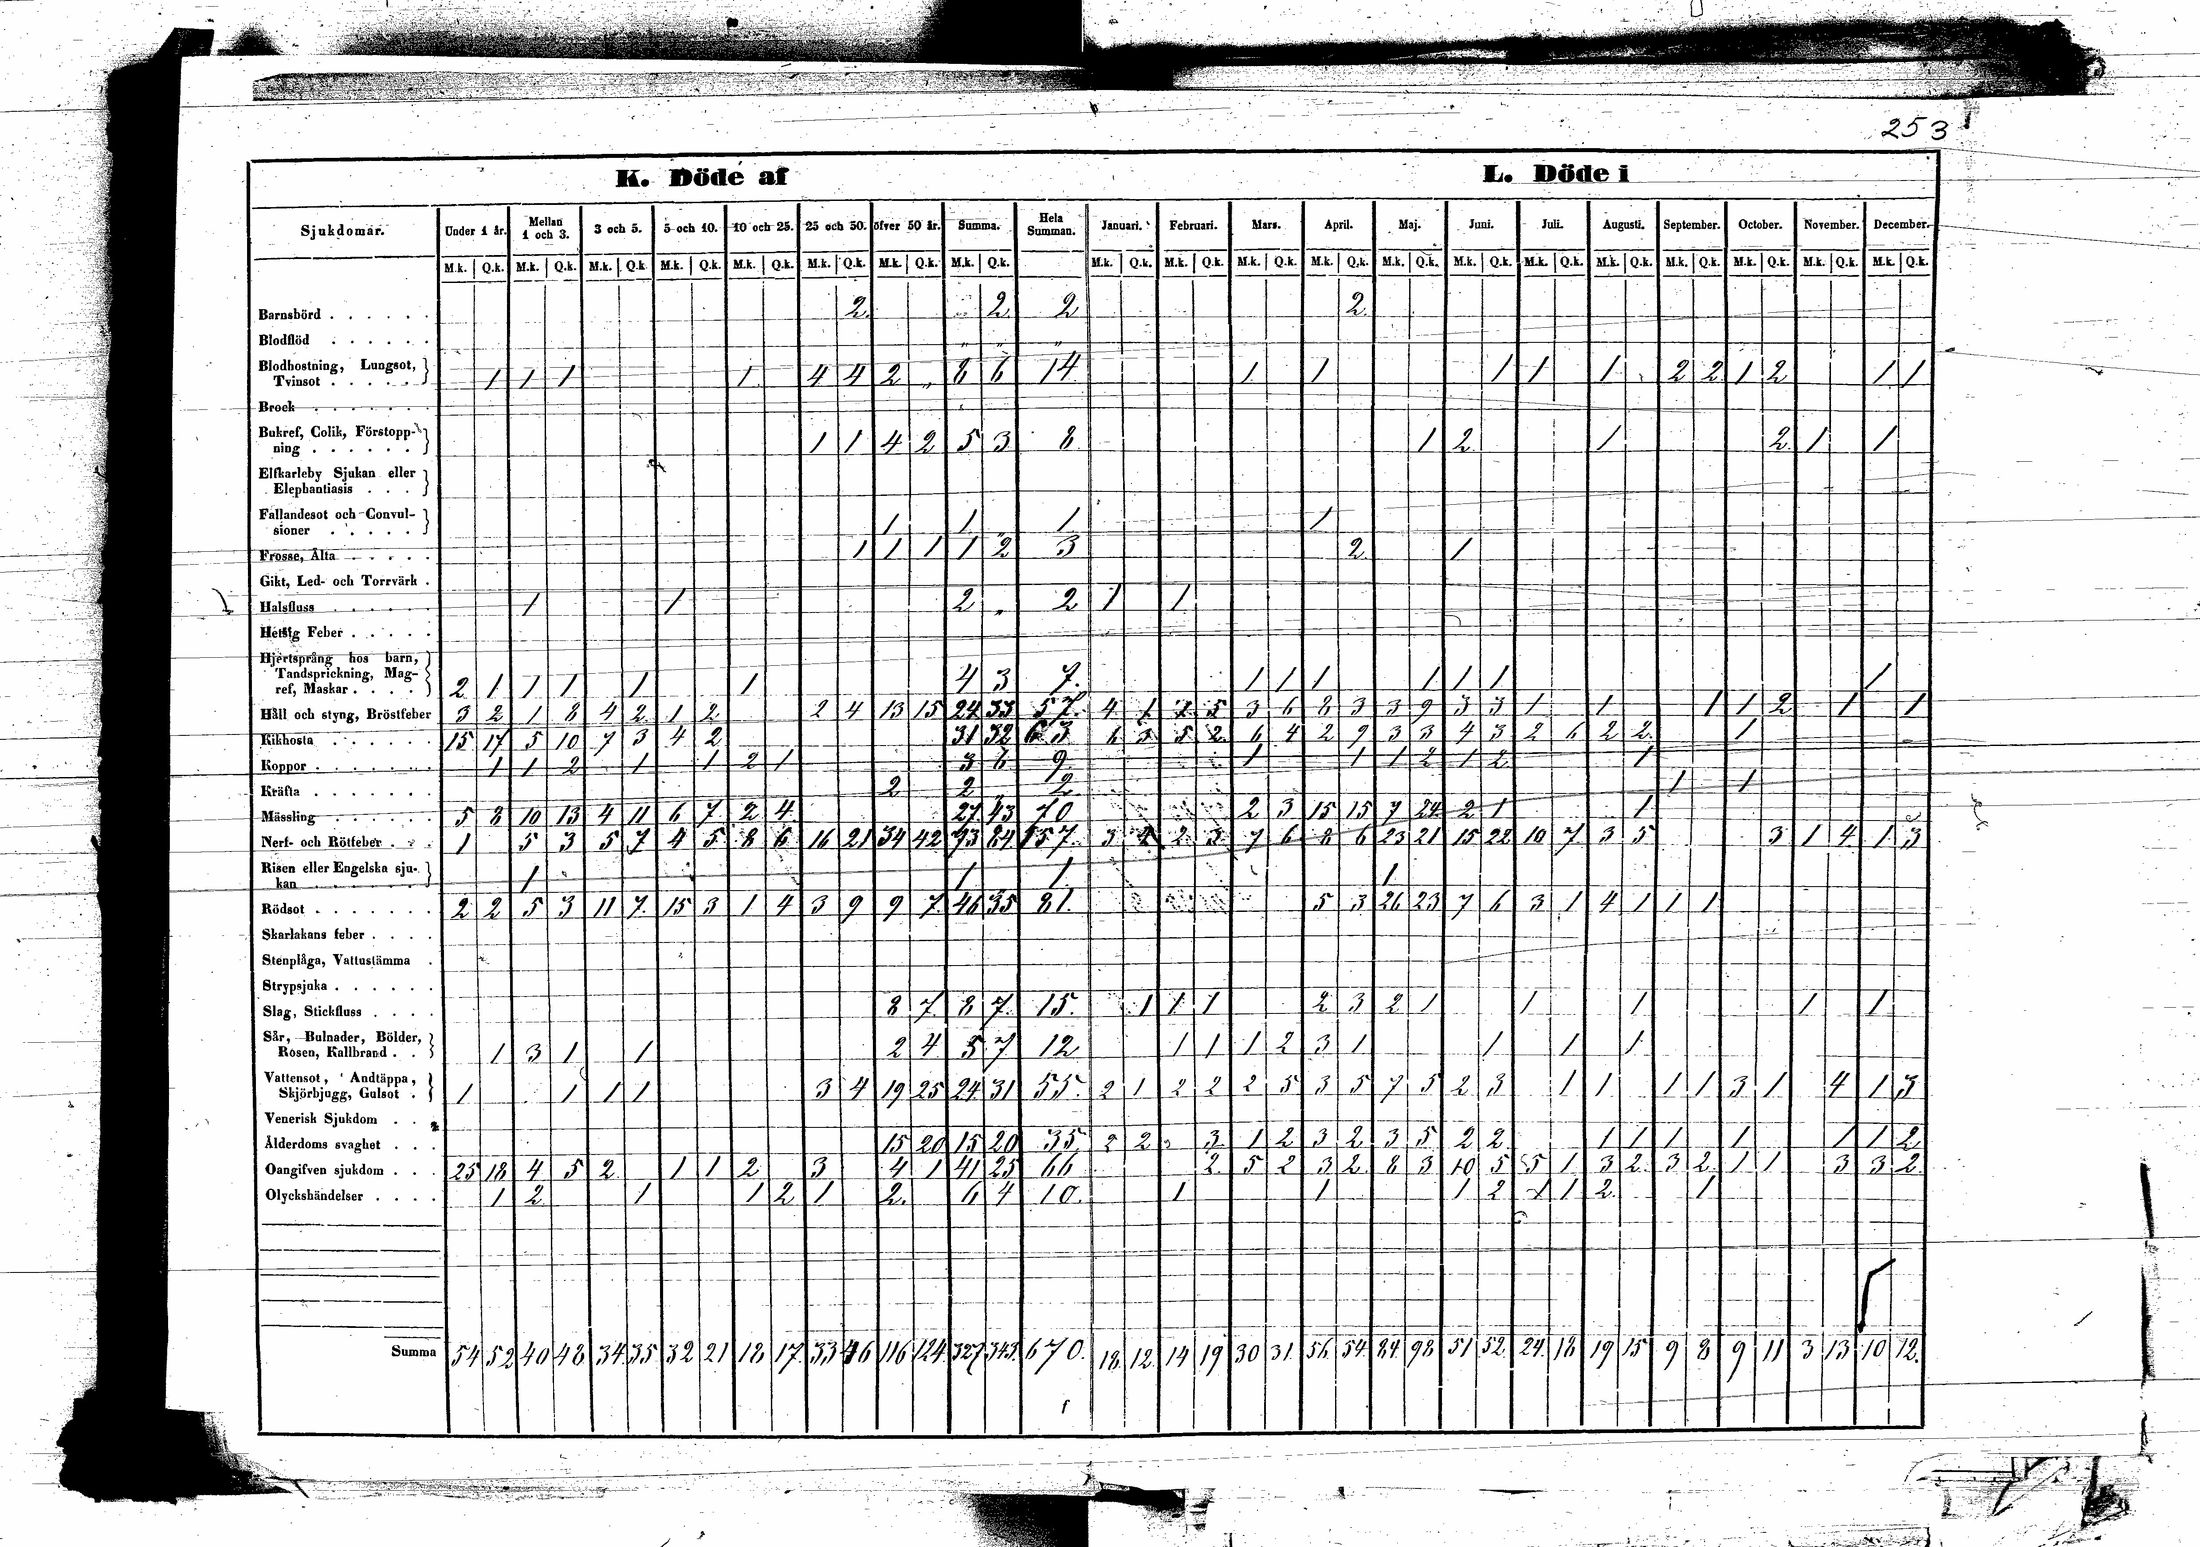 253
K. Döde af
L. Döde i
Sjukdomar. Under 1 år. Mellan 1 och 3. 3 och 5. 5 och 10. 10 och 25. 25 och 50. öfver 50 år. Summa. Hela Summan. Januari. Februari. Mars. April. Maj. Juni. Juli. Augusti. September. October. November. December.
M.k. Q.k. M.k. Q.k. M.k. Q.k. M.k. Q.k. M.k. Q.k. M.k. Q.k. M.k. Q.k. M.k. Q.k. M.k. Q.k. M.k. Q.k. M.k. Q.k. M.k. Q.k. M.k. Q.k. M.k. Q.k. M.k. Q.k. M.k. Q.k. M.k. Q.k. M.k. Q.k. M.k. Q.k. M.k. Q.k.
Barnsbörd . . . . . . 2. 2 2 2.
Blodflöd . . . . . . „ „ „
Blodhostning, Lungsot,
Tvinsot . . . . . 1 1 1 1 4 4 2 „ 8 6 14 1 1 1 1 1 2 2 1 2 1 1
Brock . . . . . . .
Bukref, Colik, Förstopp-
ning . . . . . . 1 1 4 2 5 3 8 1 2 1 2 1 1
Elfkarleby Sjukan eller
Elephantiasis . . .
Fallandesot och Convul-
sioner . . . . . 1 1 „ 1 1
Frosse, Älta . . . . . 1 1 1 1 2 3 2 1
Gikt, Led- och Torrvärk .
Halsfluss . . . . . . 1 1 2 „ 2 1 1
Hetsig Feber . . . . .
Hjertsprång hos barn,
Tandsprickning, Mag-
ref, Maskar . . . . 2 1 1 1 1 1 4 3 7. 1 1 1 1 1 1 1
Håll och styng, Bröstfeber 3 2 1 8 4 2 1 2 2 4 13 15 24 33 57. 4 1 5 3 6 8 3 3 9 3 3 1 1 1 1 2 1 1
Kikhosta . . . . . . 15 17 5 10 7 3 4 2 31 32 63 6 5 2 6 4 2 9 3 3 4 3 2 6 2 2 1
Koppor . . . . . . . 1 1 2 1 1 2 1 3 6 9 1 1 1 2 1 2 1
Kräfta . . . . . . . 2 2 „ 2 1 1
Mässling . . . . . . 5 8 10 13 4 11 6 7 2 4 27 43 70 2 3 15 15 7 24 2 1 1
Nerf- och Rötfeber . . . 1 5 3 5 7 4 5 8 6 16 21 34 42 84 157. 3 2 3 7 6 8 6 23 21 15 22 10 7 3 5 3 1 4 1 3
Risen eller Engelska sju-
kan . . . . . . 1 1 1 1
Rödsot . . . . . . . 2 2 5 3 11 7 15 3 1 4 3 9 9 7 46 35 81. 5 3 26 23 7 6 3 1 4 1 1 1
Skarlakans feber . . . .
Stenplåga, Vattustämma .
Strypsjuka . . . . . .
Slag, Stickfluss . . . . 8 7 8 7. 15. 1 1 1 2 3 2 1 1 1 1 1
Sår, Bulnader, Bölder,
Rosen, Kallbrand . . 1 3 1 1 2 4 5 7 12 1 1 1 2 3 1 1 1 1
Vattensot, Andtäppa,
Skjörbjugg, Gulsot . 1 1 1 1 3 4 19 25 24 31 55. 2 1 2 2 2 5 3 5 7 5 2 3 1 1 1 1 3 1 4 1 3
Venerisk Sjukdom . .
Ålderdoms svaghet . . . 15 20 15 20 35 2 2 3 1 2 3 2 3 5 2 2 1 1 1 1 1 1 2
Oangifven sjukdom . . . 25 18 4 5 2 1 1 2 3 4 1 41 25 66 2 5 2 3 2 8 3 10 5 5 1 3 2 3 2 1 1 3 3 2
Olyckshändelser . . . . 1 2 1 1 2 1 2. 6 4 10. 1 1 1 2 1 2 1
Summa 54 52 40 48 34 35 32 21 18 17 33 46 116 124 327 343. 670. 18 12 14 19 30 31. 56 54 84 98 51 52 24. 18 19 15 9 8 9 11 3 13 10 12.